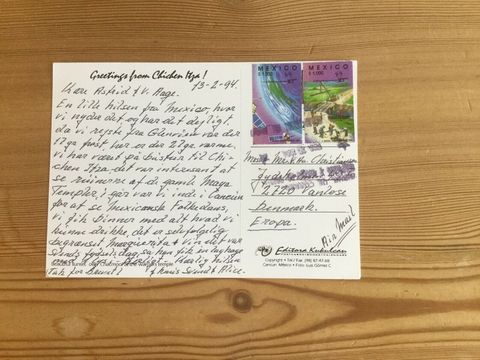 Greetings from Chicken Itza!
13-2-94.
Kære Astrid & V. Aage.
En lille hilsen fra Mexico, hvor
vi nyder det og har det dejligt,
da vi rejste fra Glenview var der
17gr frost her er der 27gr varme.
vi har været på bustur til Chi-
chen Itza, det var interessant at
se Ruinerne af de gamle Maya
Templer, i går var vi inde i Cancun
for at se Mexicansk Folkedans,
vi fik Dinner med alt hvad vi
kunne drikke, det er selvfølgelig
begrænset Margueritta & Vin det var
Svends fødselsdag, så han fik en dag
Kærlig hilsen
Tak for brevet!
Svend & Alice.
MEXICO
$1,000
MEXICO
$1,000
Christiansen
2720 Vanløse
Denmark.
Europa.
Air Mail
Editora Kukulcan
Copyright • Tel/Fax (98) 87-97-69
Cancun México • Foto: Luis Gómez C